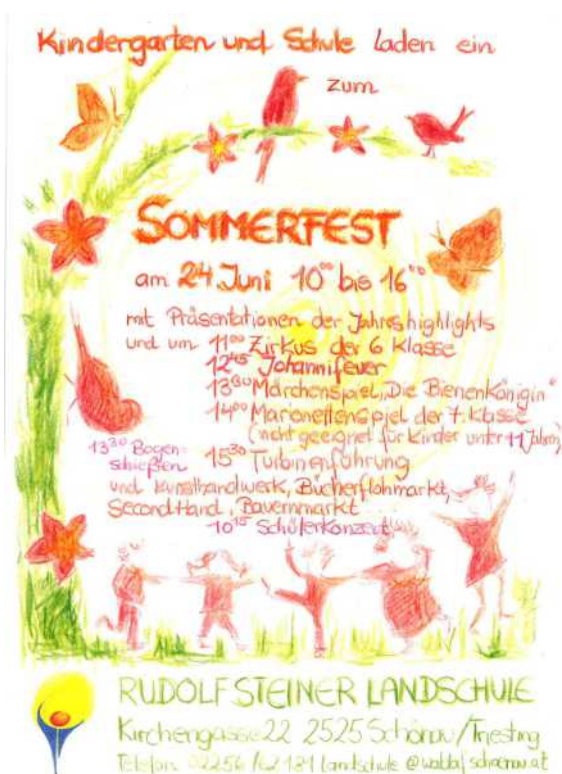 Kindergarten und Schule laden ein
zum
SOMMERFEST
am 24 Juni 10⁰⁰ bis 16⁰⁰
mit Präsentationen der Jahreshighlights
und um 11⁰⁰ Zirkus der 6 Klasse
12⁴⁵ Johannifeuer
13³⁰ Märchenspiel „Die Bienenkönigin"
14⁰⁰ Marionettenspiel der 7. Klasse
(nicht geeignet für Kinder unter 11 Jahren)
13³⁰ Bogen-
schießen
15³⁰ Turbinenführung
und Kunsthandwerk, Bücherflohmarkt,
Second Hand, Bauernmarkt
10¹⁵ Schülerkonzert
RUDOLF STEINER LANDSCHULE
Kirchengasse 22 2525 Schönau/Triesting
Telefon 02256/62181 landschule@waldorf-schoenau.at